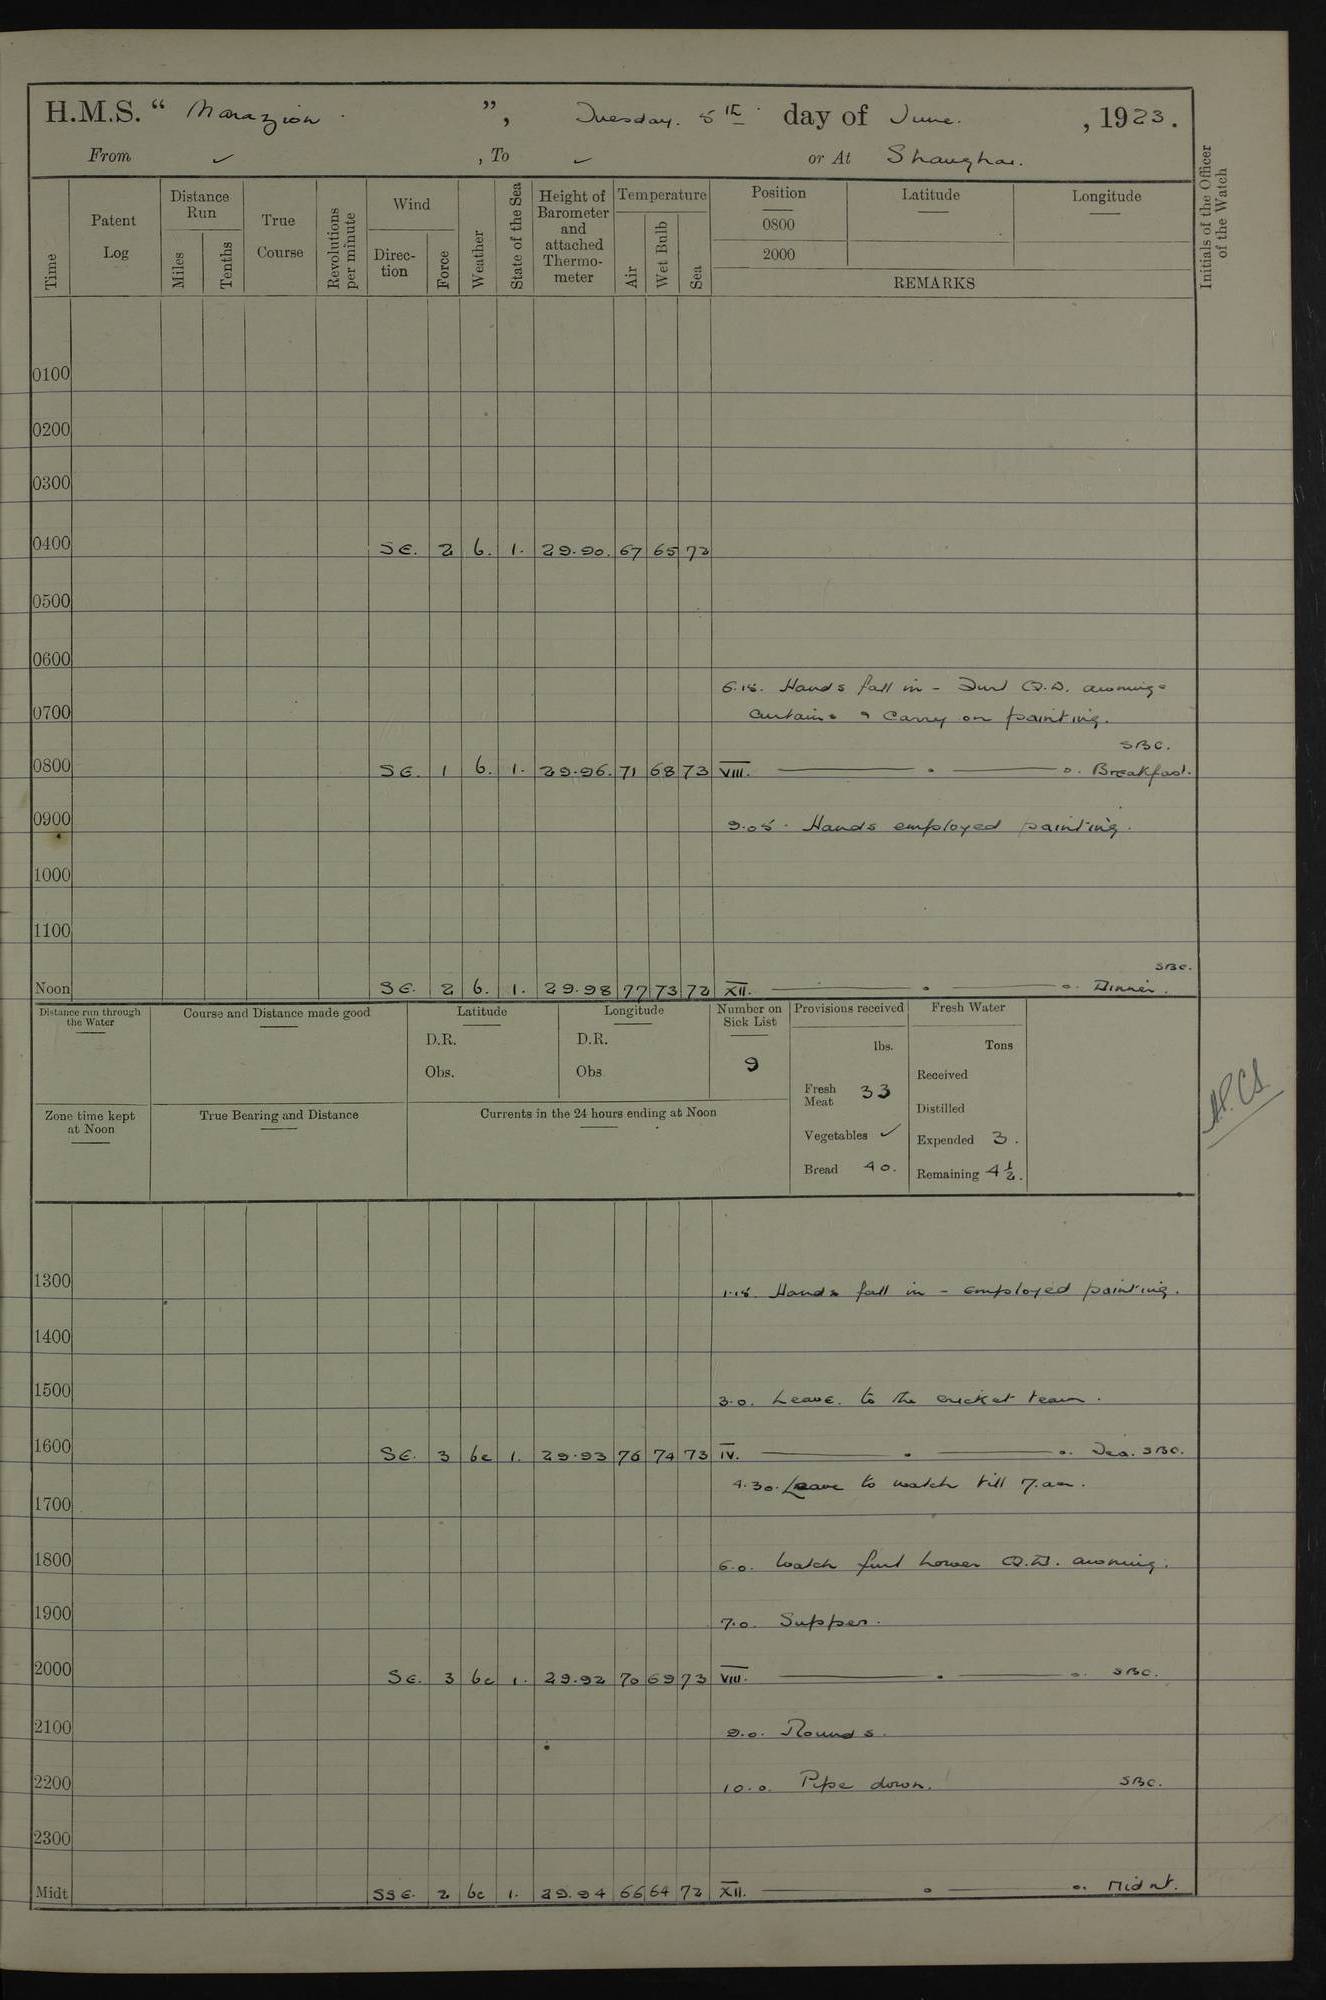 H.M.S. “ Marazion ”, Tuesday. 5th day of June. , 1923.
From ✓ , To ✓ or At Shanghai.
Time
Patent Log
Distance Run
Miles
Tenths
True Course
Revolutions per minute
Wind
Direc-tion
Force
Weather
State of the Sea
Height of Barometer and attached Thermo-meter
Temperature
Air
Wet Bulb
Sea
Position
0800
2000
Latitude
Longitude
REMARKS
Initials of the Officer of the Watch
0100
0200
0300
0400 SE. 2 b. 1. 29.90. 67 65 72
0500
0600
6.15. Hands fall in - Furl Q.D. awning
0700 curtains & carry on painting.
SBC.
0800 SE. 1 b. 1. 29.96. 71 68 73 VIII. Breakfast.
0900 9.05. Hands employed painting.
1000
1100
SBC.
Noon SE. 2 b. 1. 29.98 77 73 72 XII. Dinner.
Distance run through the Water
Course and Distance made good
Latitude
D.R.
Obs.
Longitude
D.R.
Obs
Number on Sick List
9
Provisions received
lbs.
Fresh Meat 33
Vegetables ✓
Bread 40.
Fresh Water
Tons
Received
Distilled
Expended 3.
Remaining 4½.
Zone time kept at Noon
True Bearing and Distance
Currents in the 24 hours ending at Noon
1300 1.15. Hands fall in - employed painting.
1400
1500 3.0. Leave to the cricket team.
1600 SE. 3 bc 1. 29.93 76 74 73 IV. Tea. SBC.
4.30. Leave to watch till 7.am.
1700
1800 6.0. Watch furl lower Q.D. awning.
1900 7.0. Supper.
2000 SE. 3 bc 1. 29.92 70 69 73 VIII. SBC.
2100 9.0. Rounds.
2200 10.0. Pipe down. SBC.
2300
Midt SSE. 2 bc 1. 29.94 66 64 72 XII. Midnt.